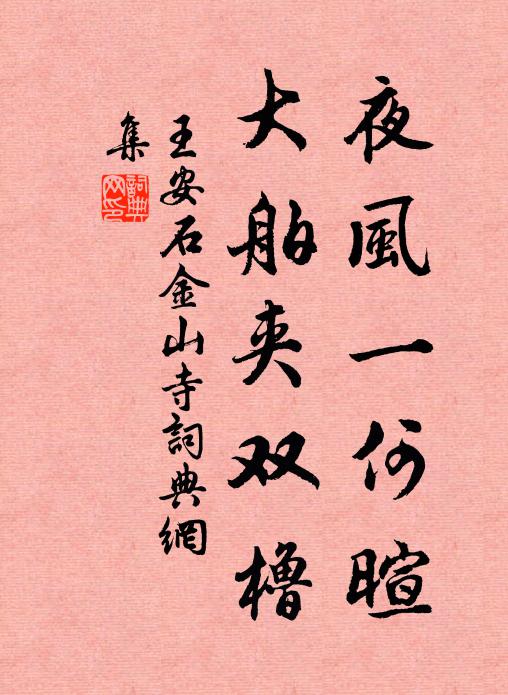 夜風一何暄
大舶夾双櫓
王安石金山寺詞典網
集
詞典网印